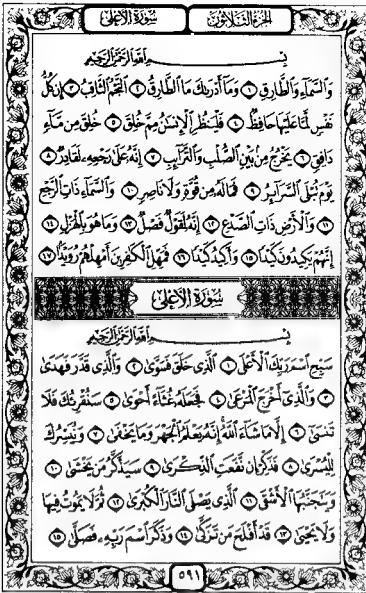 سُورَةُ الأَعْلَىٰ الجُزْءُ الثَّلَاثُونَ
بِسْمِ اللَّهِ الرَّحْمَٰنِ الرَّحِيمِ
وَالسَّمَاءِ وَالطَّارِقِ ١ وَمَا أَدْرَاكَ مَا الطَّارِقُ ٢ النَّجْمُ الثَّاقِبُ ٣ إِن كُلُّ
نَفْسٍ لَّمَّا عَلَيْهَا حَافِظٌ ٤ فَلْيَنظُرِ الْإِنسَٰنُ مِمَّ خُلِقَ ٥ خُلِقَ مِن مَّاءٍ
دَافِقٍ ٦ يَخْرُجُ مِن بَيْنِ الصُّلْبِ وَالتَّرَائِبِ ٧ إِنَّهُ عَلَىٰ رَجْعِهِ لَقَادِرٌ ٨
يَوْمَ تُبْلَى السَّرَائِرُ ٩ فَمَا لَهُ مِن قُوَّةٍ وَلَا نَاصِرٍ ١٠ وَالسَّمَاءِ ذَاتِ الرَّجْعِ
١١ وَالْأَرْضِ ذَاتِ الصَّدْعِ ١٢ إِنَّهُ لَقَوْلٌ فَصْلٌ ١٣ وَمَا هُوَ بِالْهَزْلِ ١٤
إِنَّهُمْ يَكِيدُونَ كَيْدًا ١٥ وَأَكِيدُ كَيْدًا ١٦ فَمَهِّلِ الْكَٰفِرِينَ أَمْهِلْهُمْ رُوَيْدًا ١٧
سُورَةُ الأَعْلَىٰ
بِسْمِ اللَّهِ الرَّحْمَٰنِ الرَّحِيمِ
سَبِّحِ اسْمَ رَبِّكَ الْأَعْلَى ١ الَّذِي خَلَقَ فَسَوَّىٰ ٢ وَالَّذِي قَدَّرَ فَهَدَىٰ
٣ وَالَّذِي أَخْرَجَ الْمَرْعَىٰ ٤ فَجَعَلَهُ غُثَاءً أَحْوَىٰ ٥ سَنُقْرِئُكَ فَلَا
تَنسَىٰ ٦ إِلَّا مَا شَاءَ اللَّهُ إِنَّهُ يَعْلَمُ الْجَهْرَ وَمَا يَخْفَىٰ ٧ وَنُيَسِّرُكَ
لِلْيُسْرَىٰ ٨ فَذَكِّرْ إِن نَّفَعَتِ الذِّكْرَىٰ ٩ سَيَذَّكَّرُ مَن يَخْشَىٰ ١٠
وَيَتَجَنَّبُهَا الْأَشْقَى ١١ الَّذِي يَصْلَى النَّارَ الْكُبْرَىٰ ١٢ ثُمَّ لَا يَمُوتُ فِيهَا
وَلَا يَحْيَىٰ ١٣ قَدْ أَفْلَحَ مَن تَزَكَّىٰ ١٤ وَذَكَرَ اسْمَ رَبِّهِ فَصَلَّىٰ ١٥
٥٩١